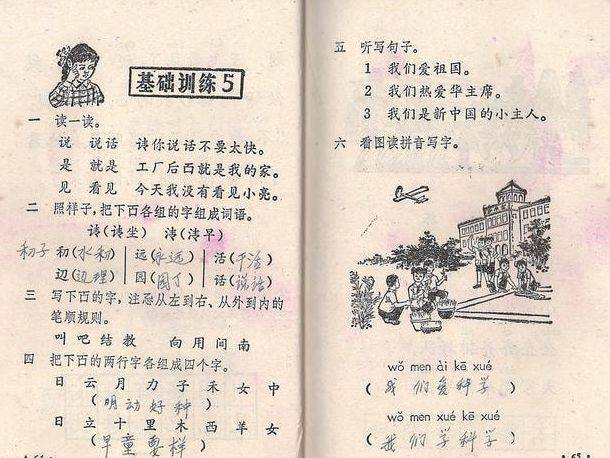 基础训练5
一 读一读。
说 说话 请你说话不要太快。
是 就是 工厂后面就是我的家。
见 看见 今天我没有看见小亮。
二 照样子,把下面各组的字组成词语。
请(请坐) 清(清早)
初(水初) 远(永远) 活(干活)
辺(辺理) 园(园丁) 话(说话)
三 写下面的字,注意从左到右、从外到内的
笔顺规则。
叫 吧 结 教 向 用 间 南
四 把下面的两行字各组成四个字。
日 云 月 力 子 禾 女 中
(明动好种)
日 立 十 里 木 西 羊 女
(早童要样)
五 听写句子。
1 我们爱祖国。
2 我们热爱华主席。
3 我们是新中国的小主人。
六 看图读拼音写字。
wǒ men ài kē xué
(我们爱科学)
wǒ men xué kē xué
(我们学科学)
65